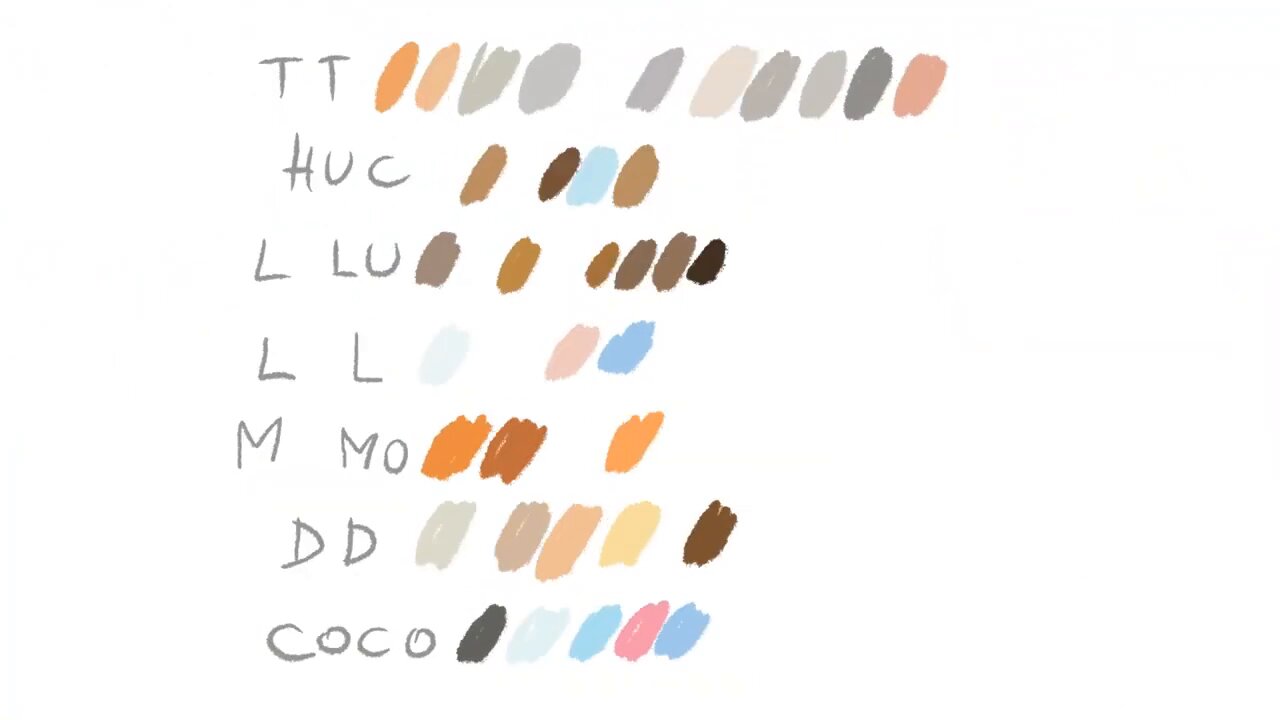 TT
HUC
L LU
L L
M MO
DD
COCO